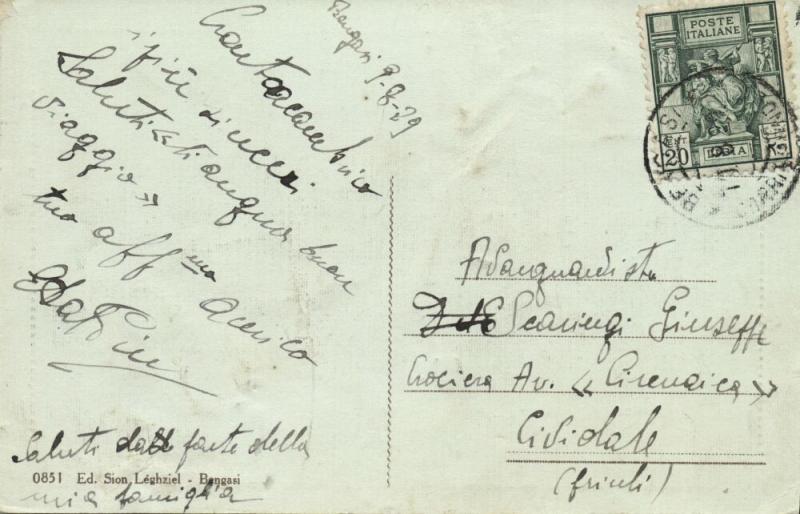 Bengasi 9-8-29
Contraccambio
i più sinceri
Saluti e ti auguro buon
viaggio »
tuo aff mo amico
Saluti da parte della
mia famiglia
0851 Ed. Sion Léghziel - Bengasi
POSTE
ITALIANE
CENT 20
LIBIA
Avanguardista
Scaringi Giuseppe
Crociera Av. « Cirenaica »
Cividale
(friuli)